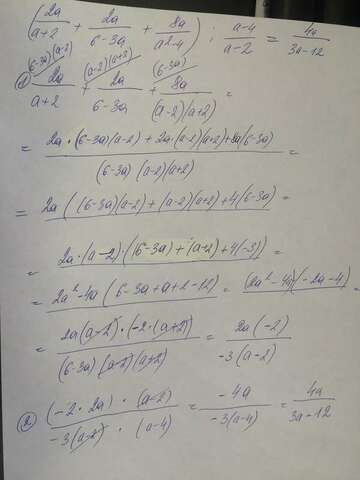 (2a/(a+2) + 2a/(6-3a) + 8a/(a²-4)) : (a-4)/(a-2) = 4a/(3a-12)
(6-3a)(a-2) (a-2)(a+2) (6-3a)
① 2a/(a+2) + 2a/(6-3a) + 8a/((a-2)(a+2)) =
= (2a·(6-3a)(a-2) + 2a·(a-2)(a+2) + 8a(6-3a))/((6-3a)(a-2)(a+2)) =
= 2a((6-3a)(a-2) + (a-2)(a+2) + 4(6-3a) =
= 2a·(a-2)·(6-3a) + (a+2) + 4(-3) =
= 2a²-4a (6-3a+a+2-12) = (2a²-4a)(-2a-4) =
= (2a(a-2)·(-2·(a+2))/((6-3a)(a-2)(a+2)) = 2a(-2)/(-3(a-2))
② ((-2·2a)·(a-2))/(-3(a-2)·(a-4)) = -4a/(-3(a-4)) = 4a/(3a-12)